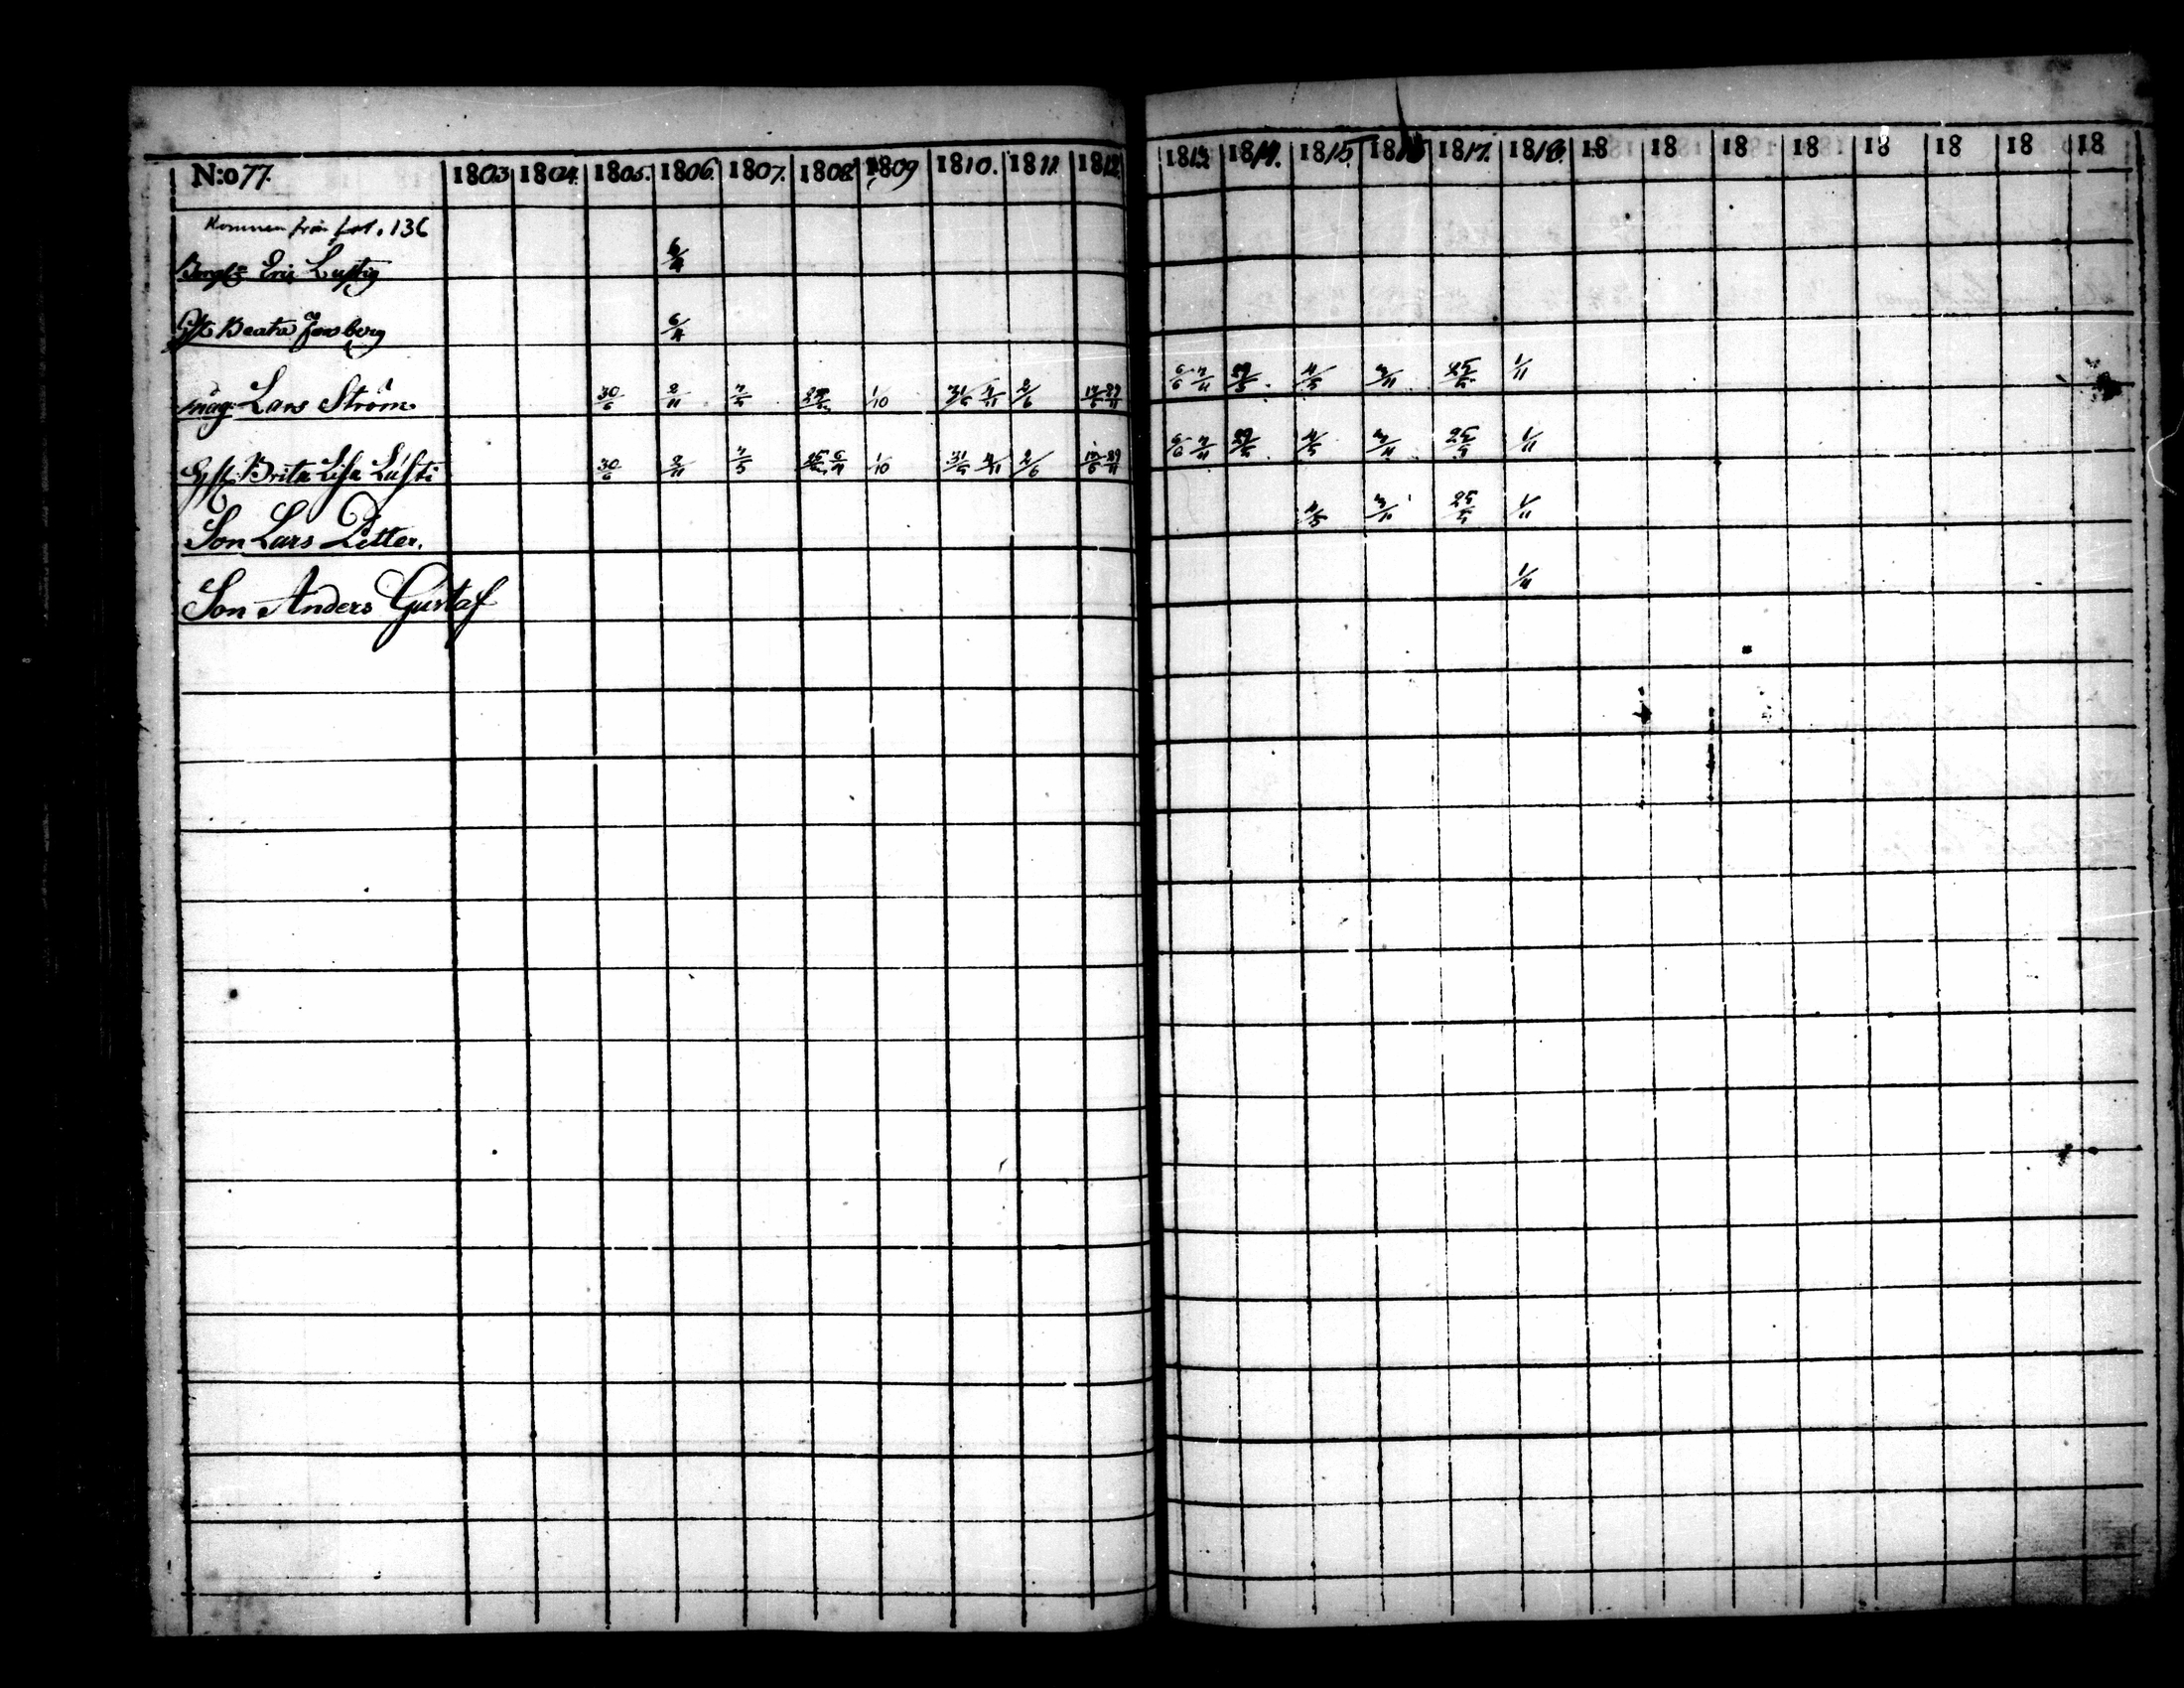 N:o 77. 1803 1804. 1805. 1806. 1807. 1808. 1809 1810. 1811. 1812. 1813. 1814. 1815. 1816 1817. 1818. 18 18 18 18 18 18 18 18
Kommen från fol. 136
Eric Lustig 6/4
Beata 6/4
måg. Lars Ström 30/6 2/11 7/5 1/10 31/5 4/11 2/6 29/11 6/6 7/11 29/5 4/5 3/11 25/5 1/11
Gft. Brita Lisa Lusti 30/6 2/11 7/5 1/10 31/5 4/11 2/6 29/11 6/6 7/11 29/5 4/5 3/11 25/5 1/11
Son Lars Petter. 4/5 3/11 25/5 1/11
Son Anders Gustaf 1/11